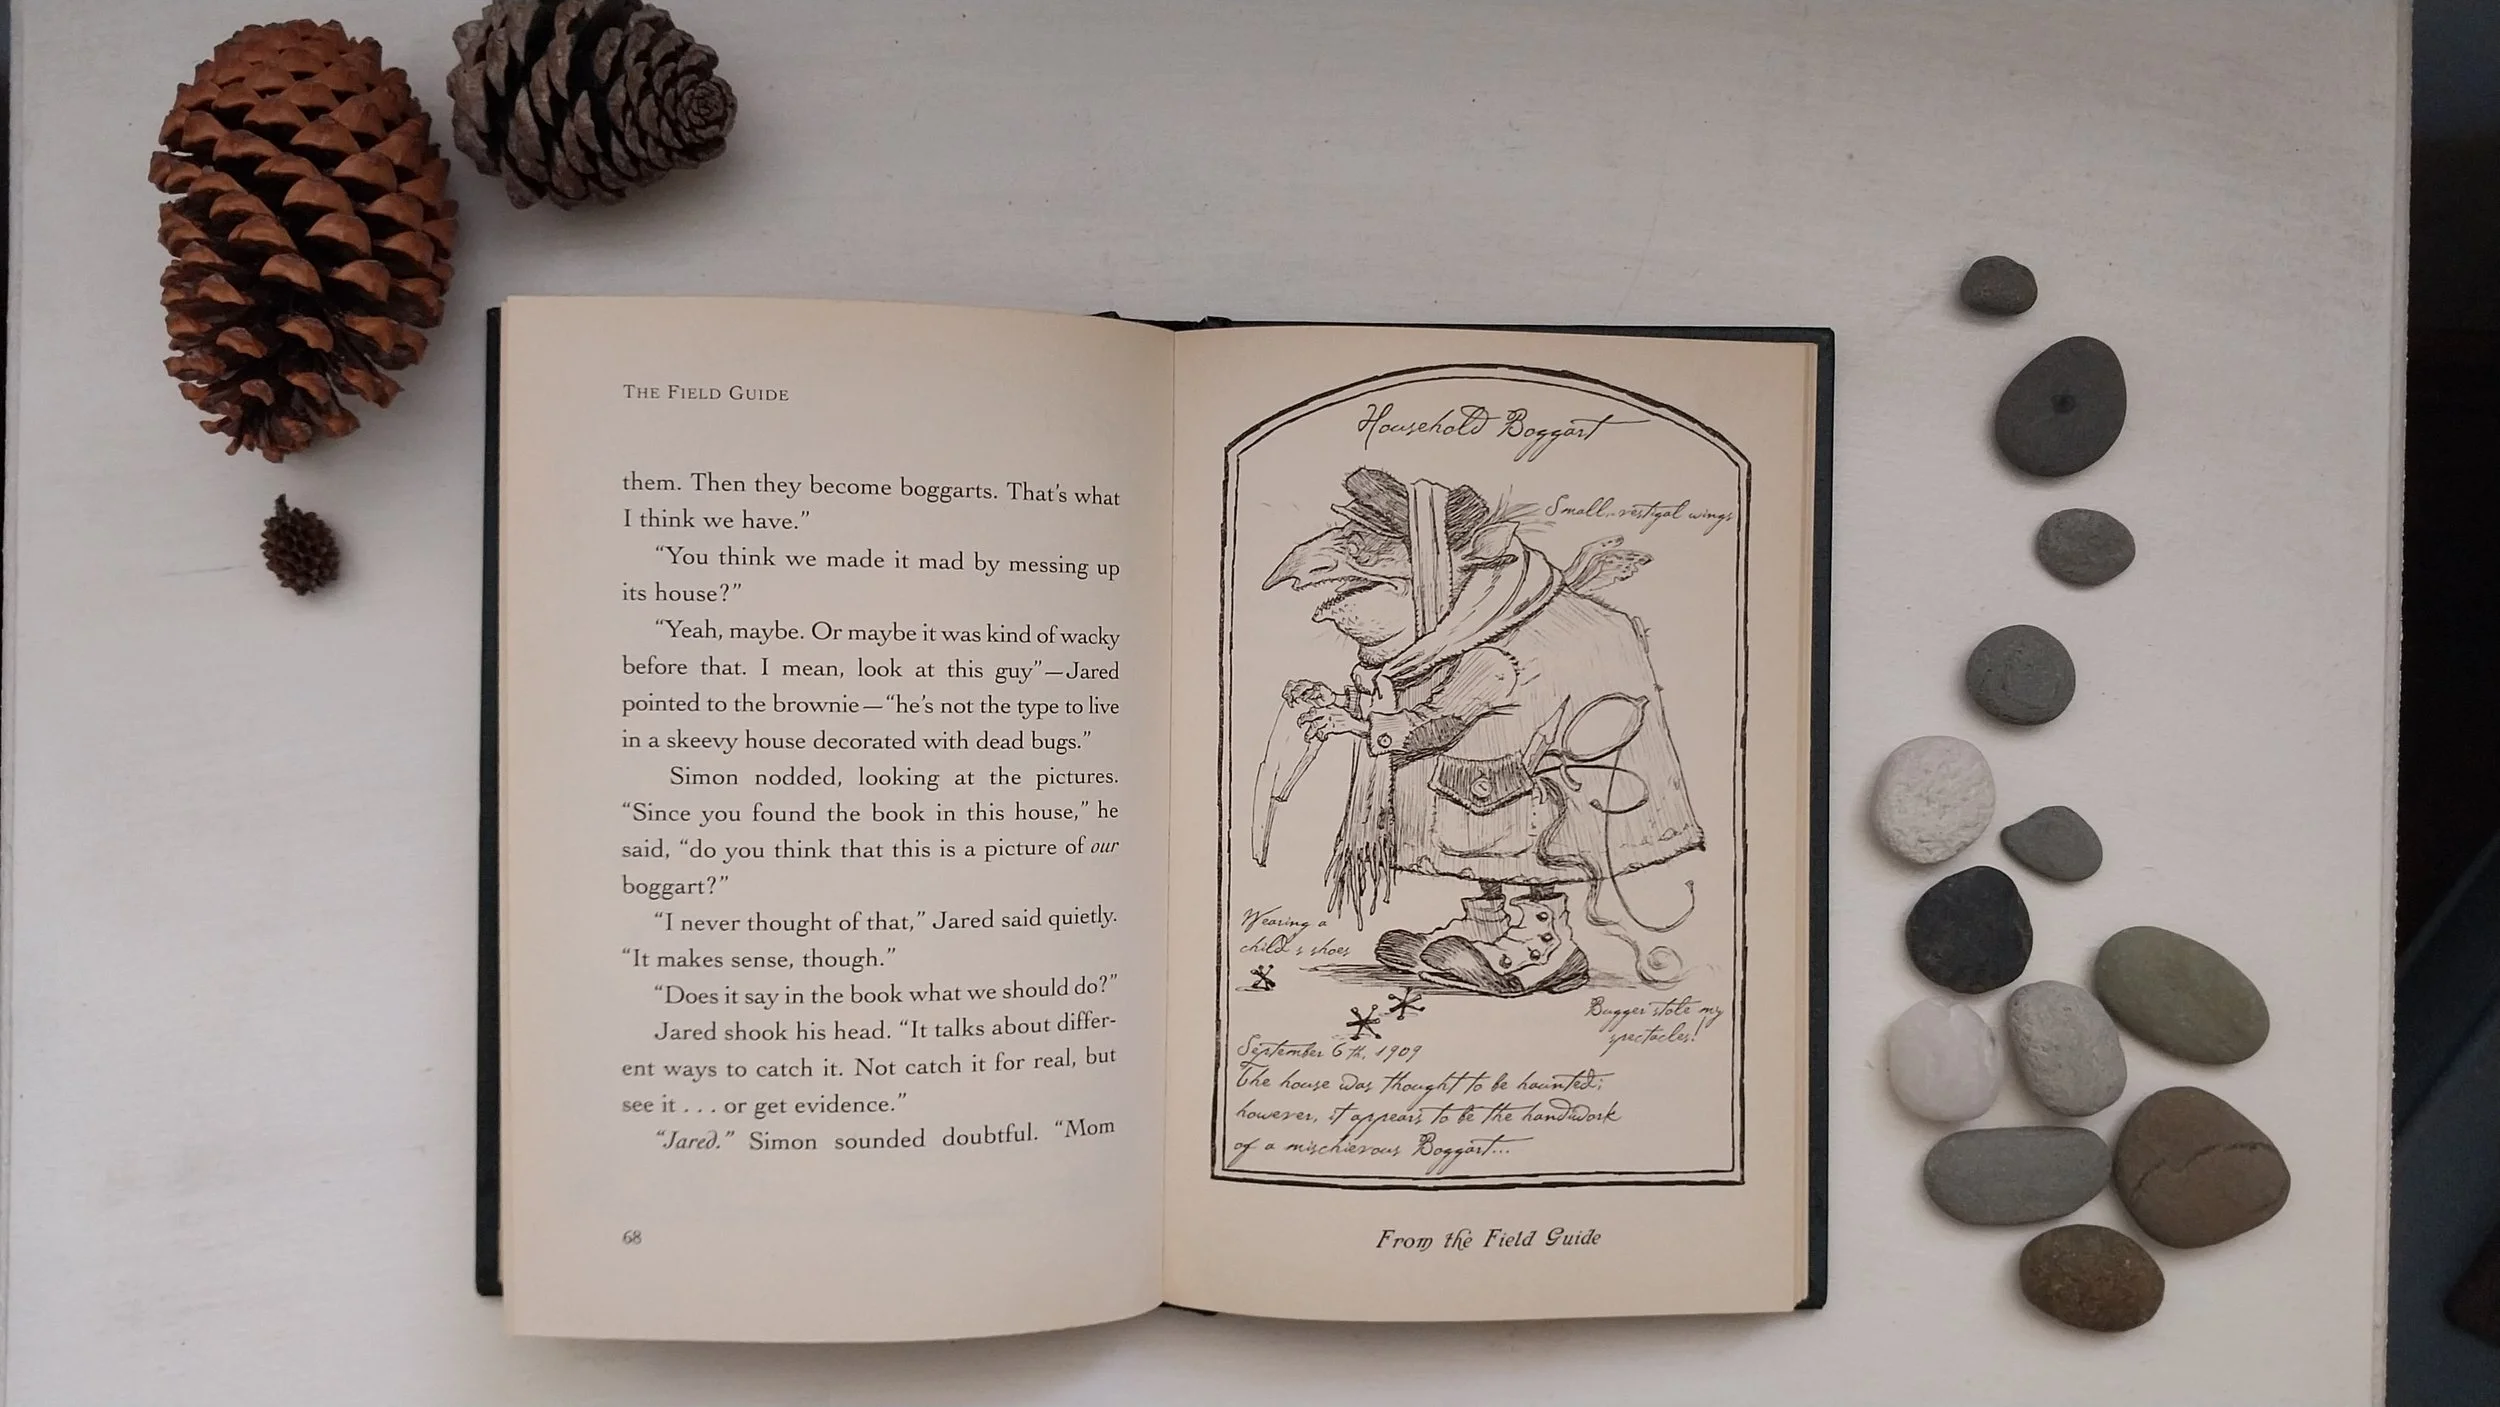 THE FIELD GUIDE
them. Then they become boggarts. That's what
I think we have.”
“You think we made it mad by messing up
its house?”
“Yeah, maybe. Or maybe it was kind of wacky
before that. I mean, look at this guy”—Jared
pointed to the brownie—“he's not the type to live
in a skeevy house decorated with dead bugs.”
Simon nodded, looking at the pictures.
“Since you found the book in this house,” he
said, “do you think that this is a picture of our
boggart?”
“I never thought of that,” Jared said quietly.
“It makes sense, though.”
“Does it say in the book what we should do?”
Jared shook his head. “It talks about differ-
ent ways to catch it. Not catch it for real, but
see it . . . or get evidence.”
“Jared.” Simon sounded doubtful. “Mom
68
Household Boggart
Small vestigal wings
Wearing a
child's shoes
Bugger stole my
spectacles!
September 6th, 1909
The house was thought to be haunted;
however, it appears to be the handiwork
of a mischievous Boggart...
From the Field Guide